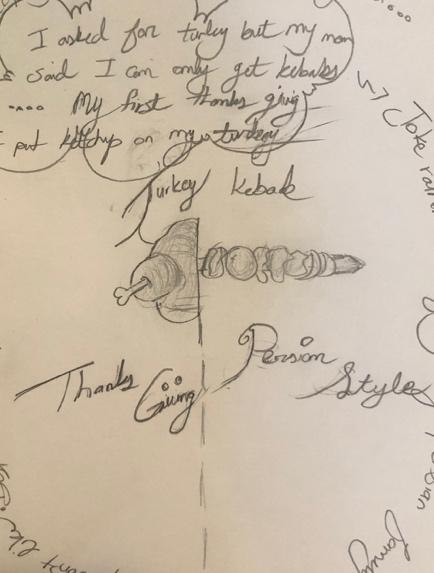 I asked for turkey but my mom
said I can only get kebabs
.... My first thanks giving
I put ketchup on my turkeny
Joke
Turkey Kebab
Thanks Giving
Persian
Style
family
like